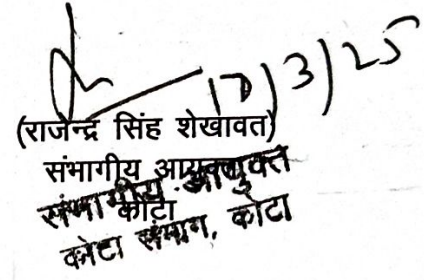 3/25
(राजेन्द्र सिंह शेखावत)
संभागीय आयुक्त
कोटा
संभागीय आयुक्त
कोटा संभाग, कोटा